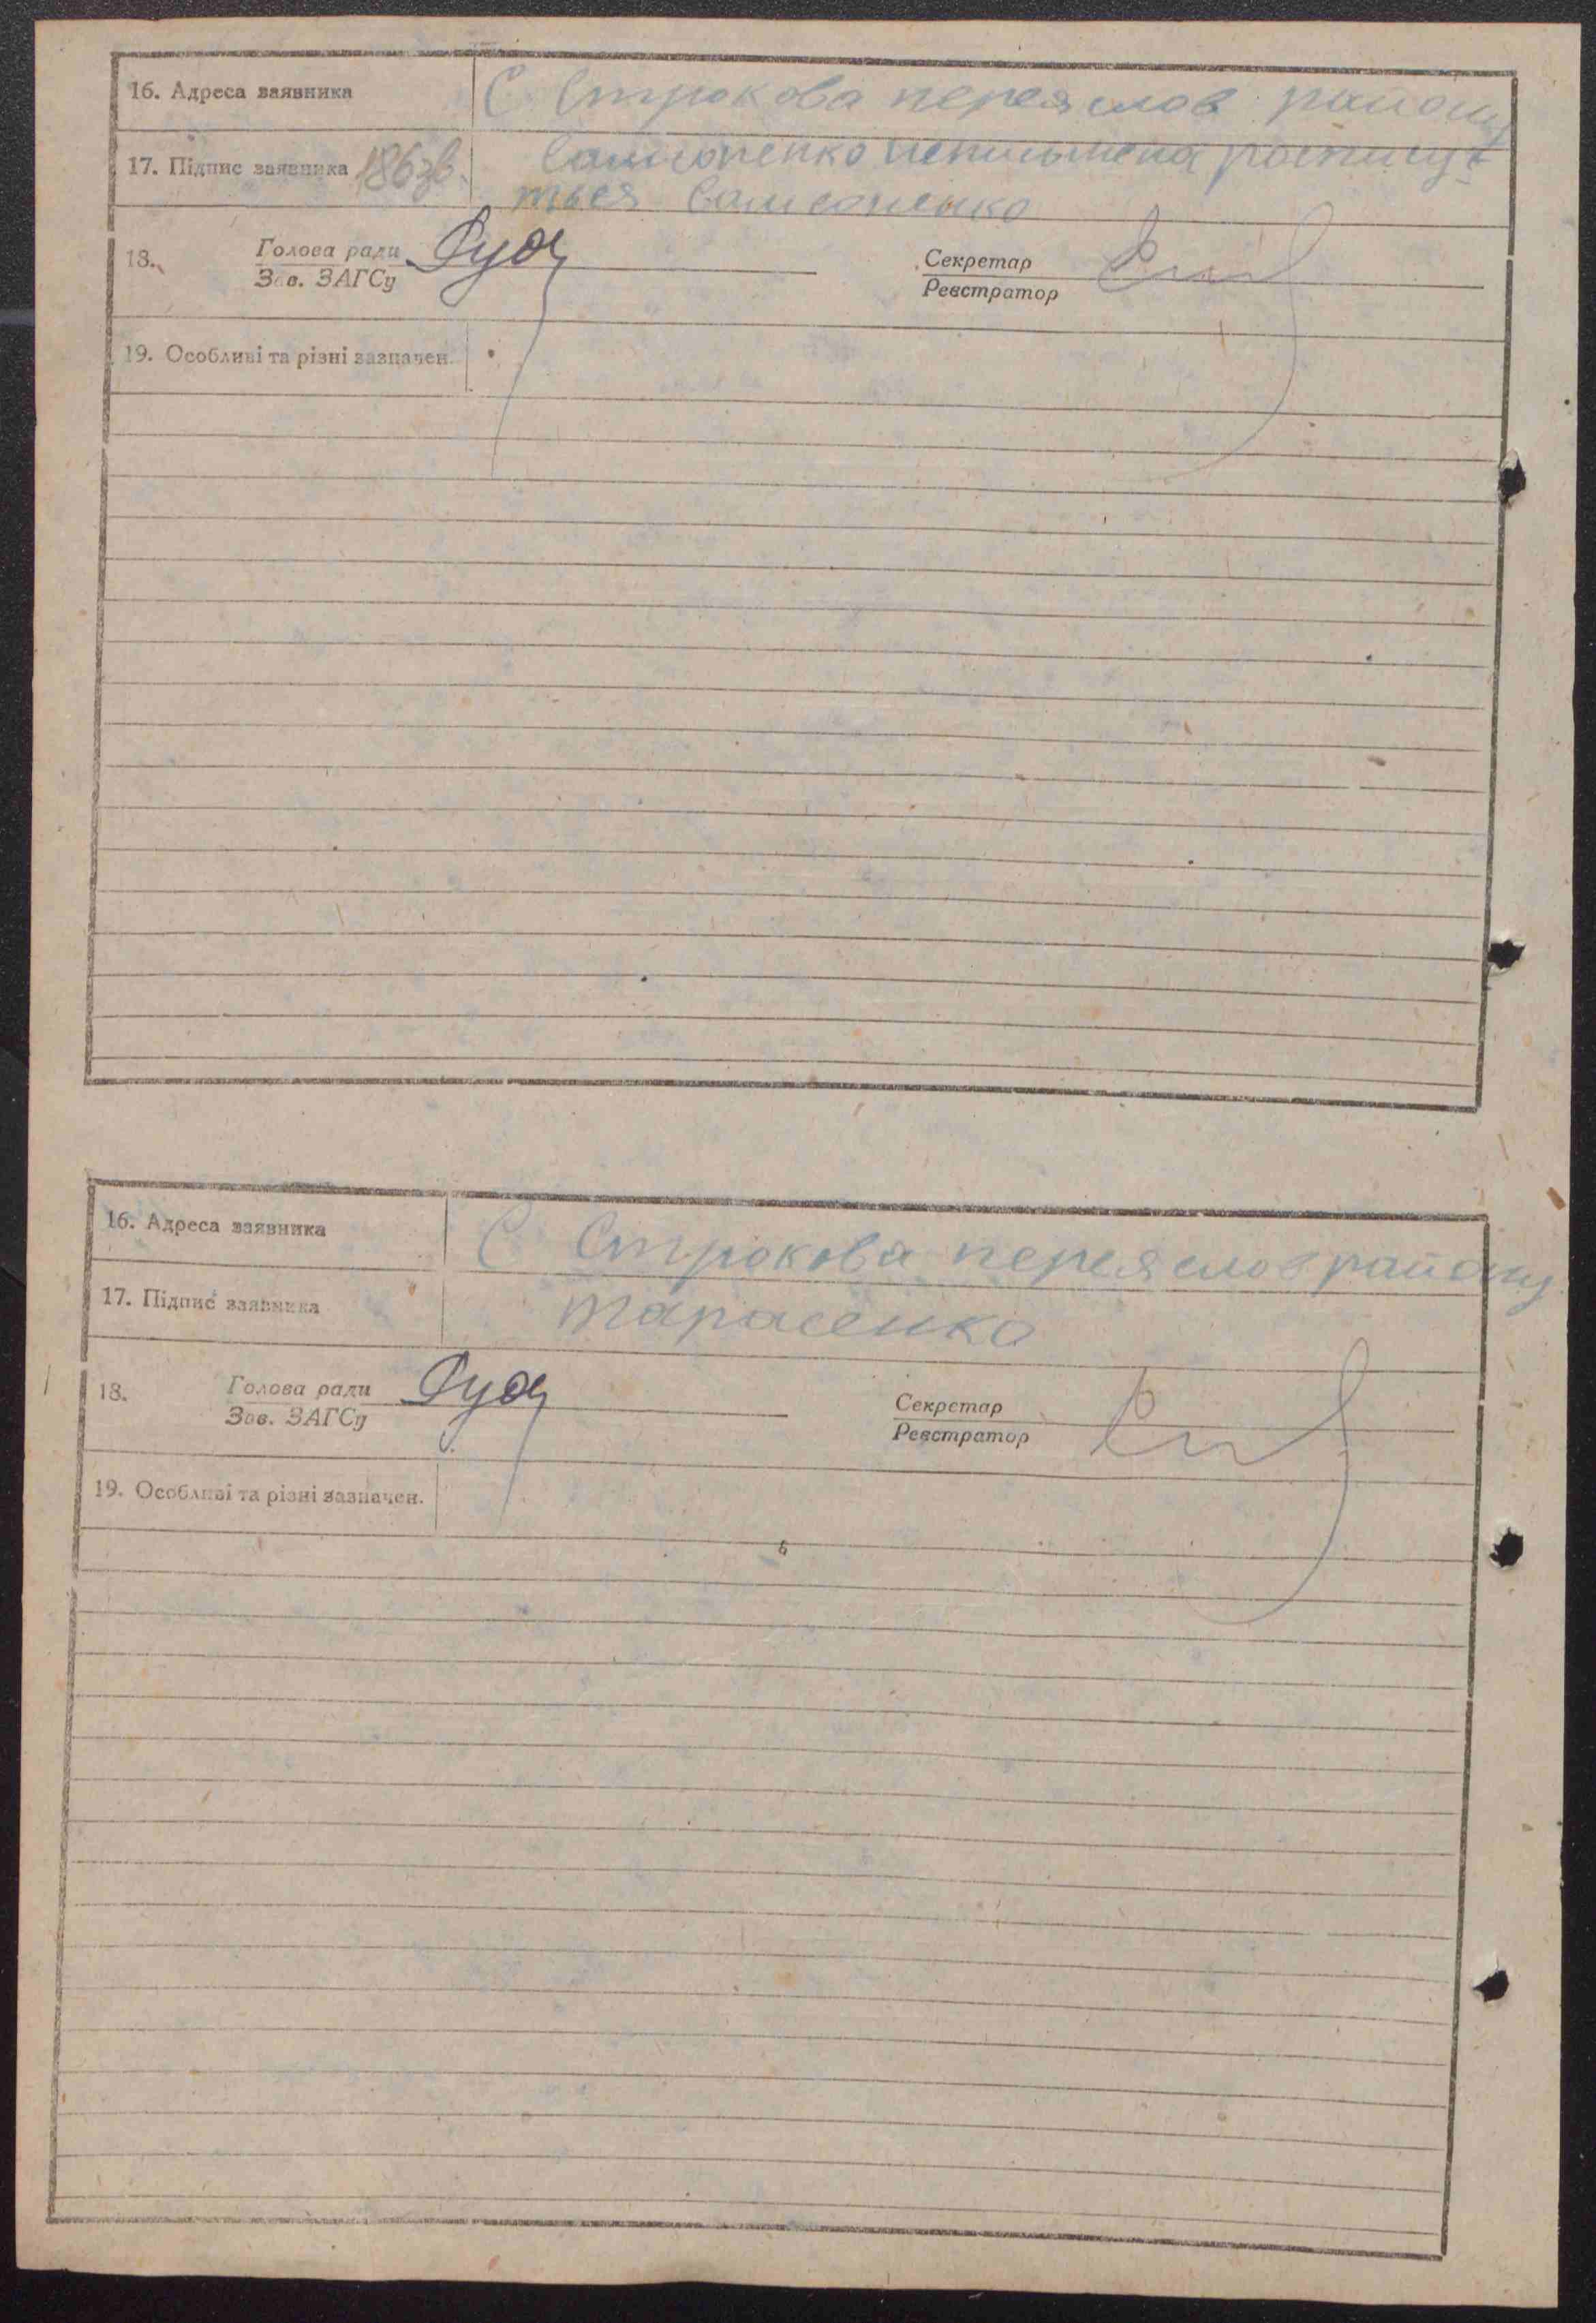 16. Адреса заявника С Строкова переяслов району
17. Підпис заявника 186зв. Самсоненко неписьмена росписує
ться Самсоненко
18. Голова ради Секретар
Зав. ЗАГСу Реєстратор
19. Особливі та різні зазначен.
16. Адреса заявника С Строкова переяслов району
17. Підпис заявника Тарасенко
18. Голова ради Секретар
Зав. ЗАГСу Реєстратор
19. Особливі та різні зазначен.